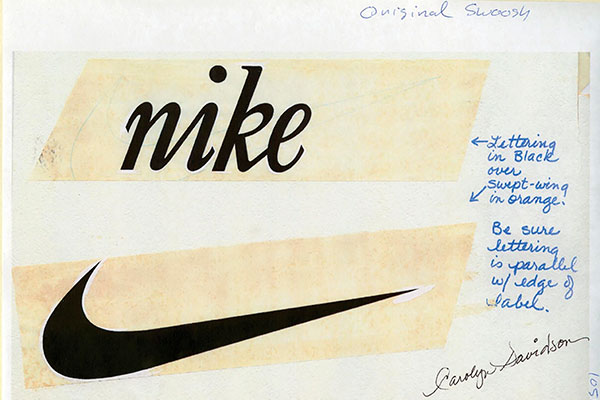 Original Swoosh
nike
←Lettering
in Black
over
swept-wing
in orange.
Be sure
lettering
is parallel
w/ edge of
label.
Carolyn Davidson